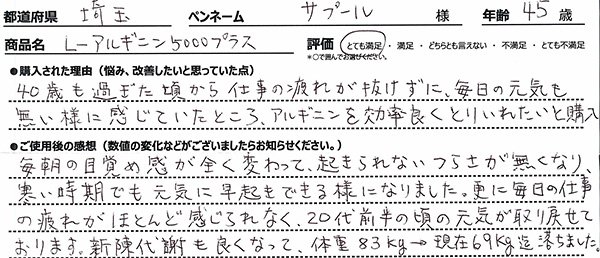 都道府県 埼玉 ペンネーム サプール 様 年齢 45 歳
商品名 L-アルギニン5000プラス 評価 とても満足・満足・どちらとも言えない・不満足・とても不満足
*○で囲んでお選びください。
●購入された理由(悩み、改善したいと思っていた点)
40歳も過ぎた頃から仕事の疲れが抜けずに、毎日の元気も
無い様に感じていたところ、アルギニンを効率良くとりいれたいと購入
●ご使用後の感想(数値の変化などがございましたらお知らせください。)
毎朝の目覚め感が全く変わって、起きられないつらさが無くなり、
寒い時期でも元気に早起きできる様になりました。更に毎日の仕事
の疲れがほとんど感じられなく、20代前半の頃の元気が取り戻せて
おります。新陳代謝も良くなって、体重83kg→現在69kg迄落ちました。